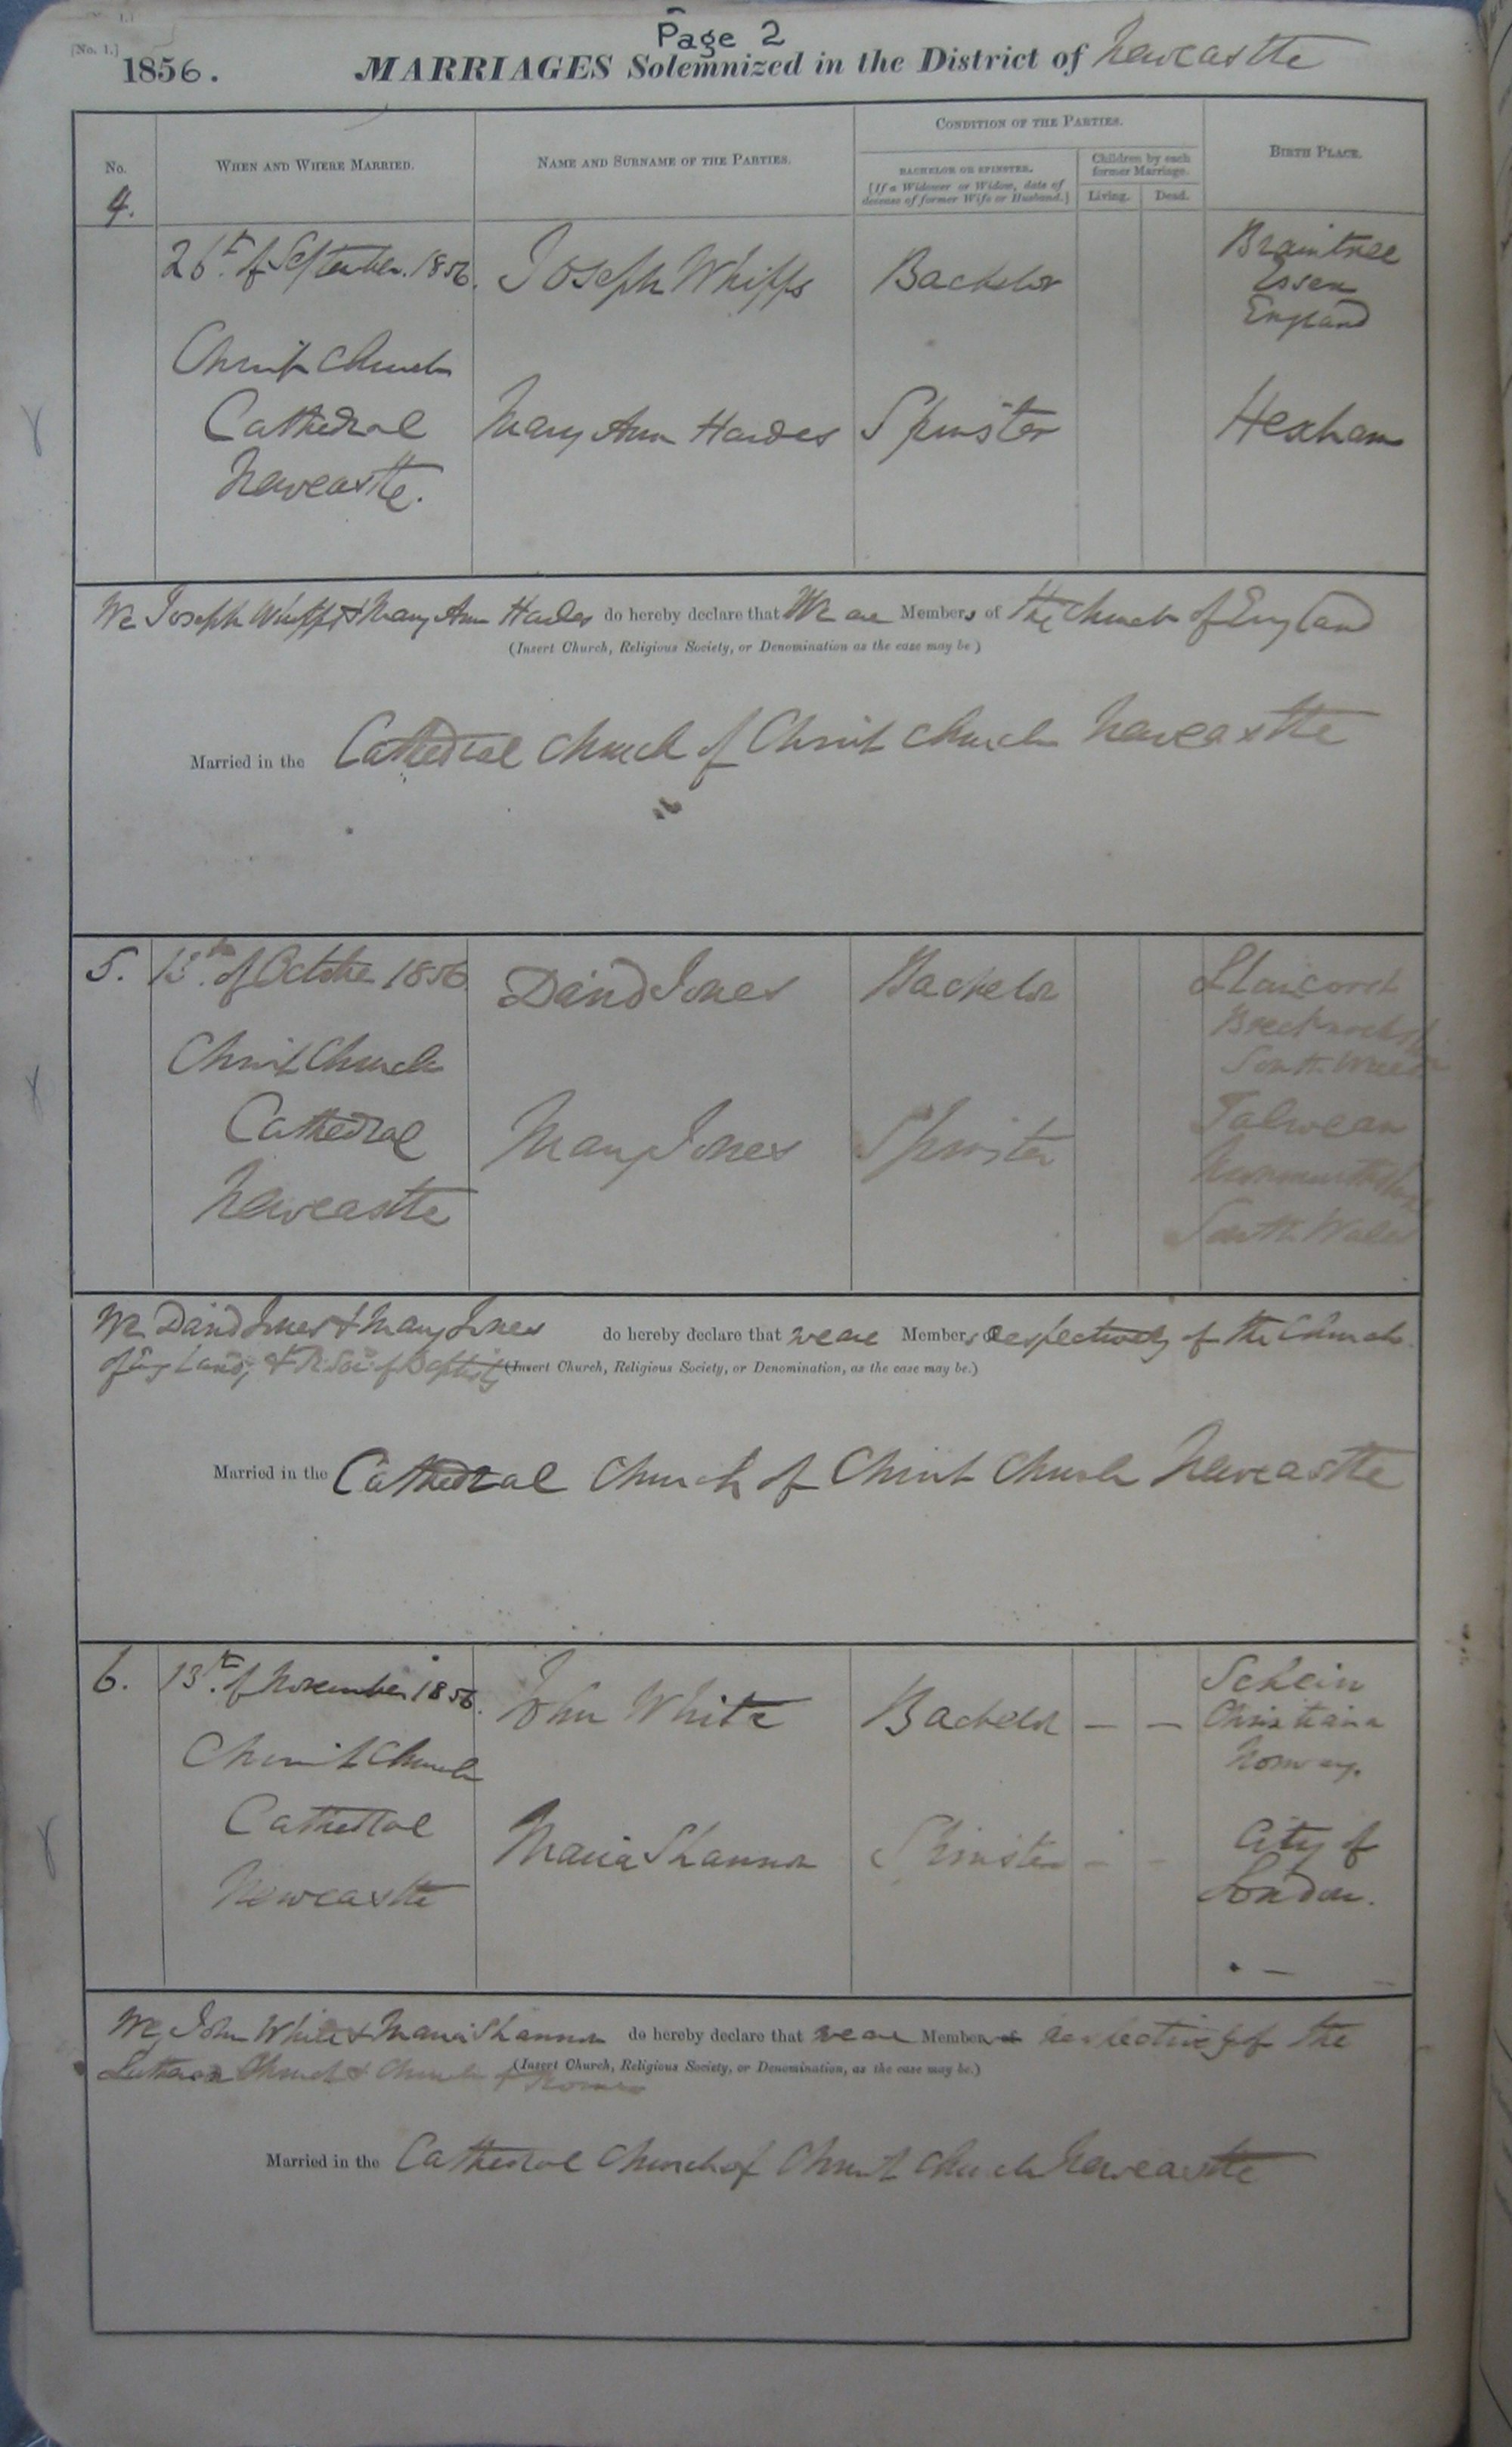 Page 2
[No. 1.]
1856. MARRIAGES Solemnized in the District of Newcastle
CONDITION OF THE PARTIES.
No. WHEN AND WHERE MARRIED. NAME AND SURNAME OF THE PARTIES. BACHELOR OR SPINSTER. Children by each former Marriage. BIRTH PLACE.
[If a Widower or Widow, date of decease of former Wife or Husband.] Living. Dead.
4.
26th of September 1856. Joseph Whipps Bachelor Braintree
Essex
England
Christ Church
Cathedral Mary Ann Hawdes Spinster Hexham
Newcastle.
We Joseph Whipps & Mary Ann do hereby declare that We are Members of the Church of England
(Insert Church, Religious Society, or Denomination as the case may be)
Married in the Cathedral Church of Christ Church Newcastle
5. 13th of October 1856 David Jones Bachelor
South Wales
Christ Church
Cathedral Mary Jones Spinster
Newcastle Monmouthshire
South Wales
We David Jones & Mary Jones do hereby declare that we are Members respectively of the Church
of England, & Baptists (Insert Church, Religious Society, or Denomination, as the case may be.)
Married in the Cathedral Church of Christ Church Newcastle
6. 13th of November 1856. John White Bachelor — — Schein
Christiana
Norway.
Christ Church
Cathedral Maria Shannon Spinster - - City of
Newcastle London.
We, John White & Maria Shannon do hereby declare that we are Members respectively of the
Lutheran Church & Church of Rome (Insert Church, Religious Society, or Denomination, as the case may be.)
Married in the Cathedral Church of Christ Church Newcastle